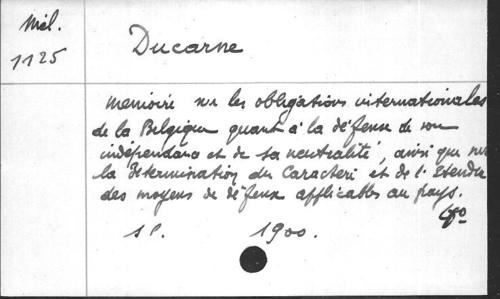 Mél.
1125
Ducarne
Memoire sur les obligations internationales
de la Belgique quant à la défense de son
indépendance et de sa neutralité, ainsi que sur
la Détermination du Caractère et de l'Etendue
des moyens de défense applicables au pays.
s.l. 1900.